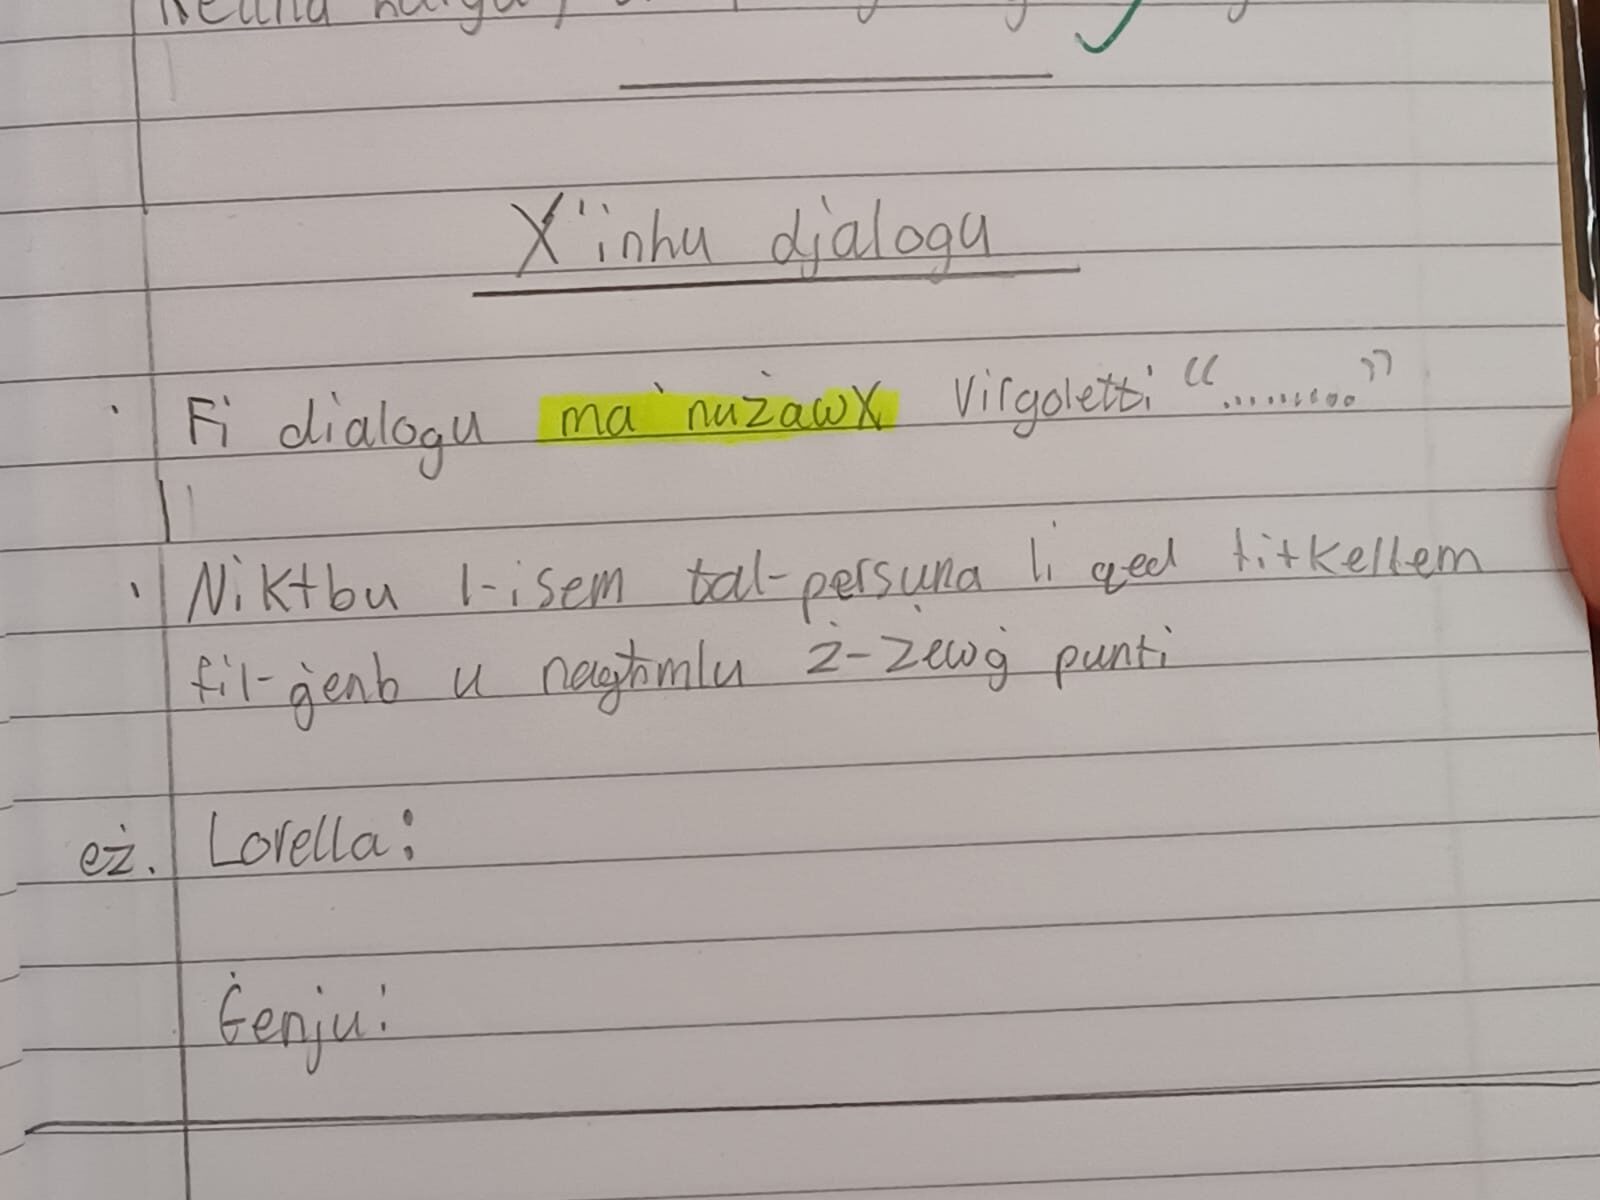 X'inhu djalogu
Fi dialogu ma nużawx Virgoletti “.........”
Niktbu l-isem tal-persuna li qed titkellem
fil-ġenb u nagħmlu ż-żewġ punti
eż. Lorella:
Ġenju: